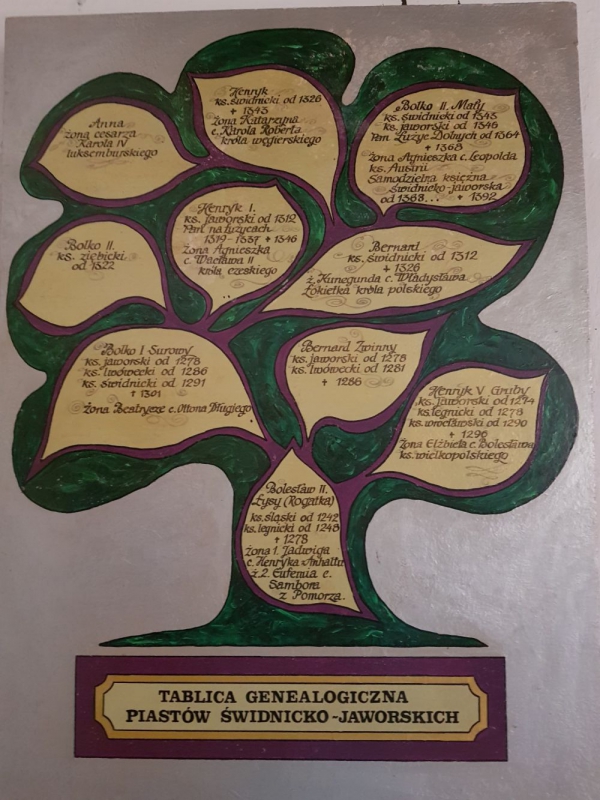 Anna
żona cesarza
Karola IV
luksemburskiego
Henryk
ks. świdnicki od 1326
+ 1343
żona Katarzyna
c. Karola Roberta
króla węgierskiego
Bolko II. Mały
ks. świdnicki od 1343
ks. jaworski od 1346
Pan Łużyc Dolnych od 1364
+ 1368
żona Agnieszka c. Leopolda
ks. Austrii
Samodzielna księżna
świdnicko-jaworska
od 1368... + 1392
Bolko II.
ks. ziębicki
od 1322
Henryk I.
ks. jaworski od 1312
Pan na Łużycach
1319-1337 + 1346
żona Agnieszka
c. Wacława II
króla czeskiego
Bernard
ks. świdnicki od 1312
+ 1326
ż. Kunegunda c. Władysława
Łokietka króla polskiego
Bolko I Surowy
ks. jaworski od 1278
ks. lwówecki od 1286
ks. świdnicki od 1291
+ 1301
żona Beatrycze c. Ottona Długiego
Bernard Zwinny
ks. jaworski od 1278
ks. lwówecki od 1281
+ 1286
Henryk V Gruby
ks. jaworski od 1274
ks. legnicki od 1278
ks. wrocławski od 1290
+ 1296
żona Elżbieta c. Bolesława
ks. wielkopolskiego
Bolesław II.
Łysy (Rogatka)
ks. śląski od 1242
ks. legnicki od 1248
+ 1278
żona 1. Jadwiga
c. Henryka Anhaltu
ż. 2. Eufemia c.
Sambora
z Pomorza.
TABLICA GENEALOGICZNA
PIASTÓW ŚWIDNICKO-JAWORSKICH